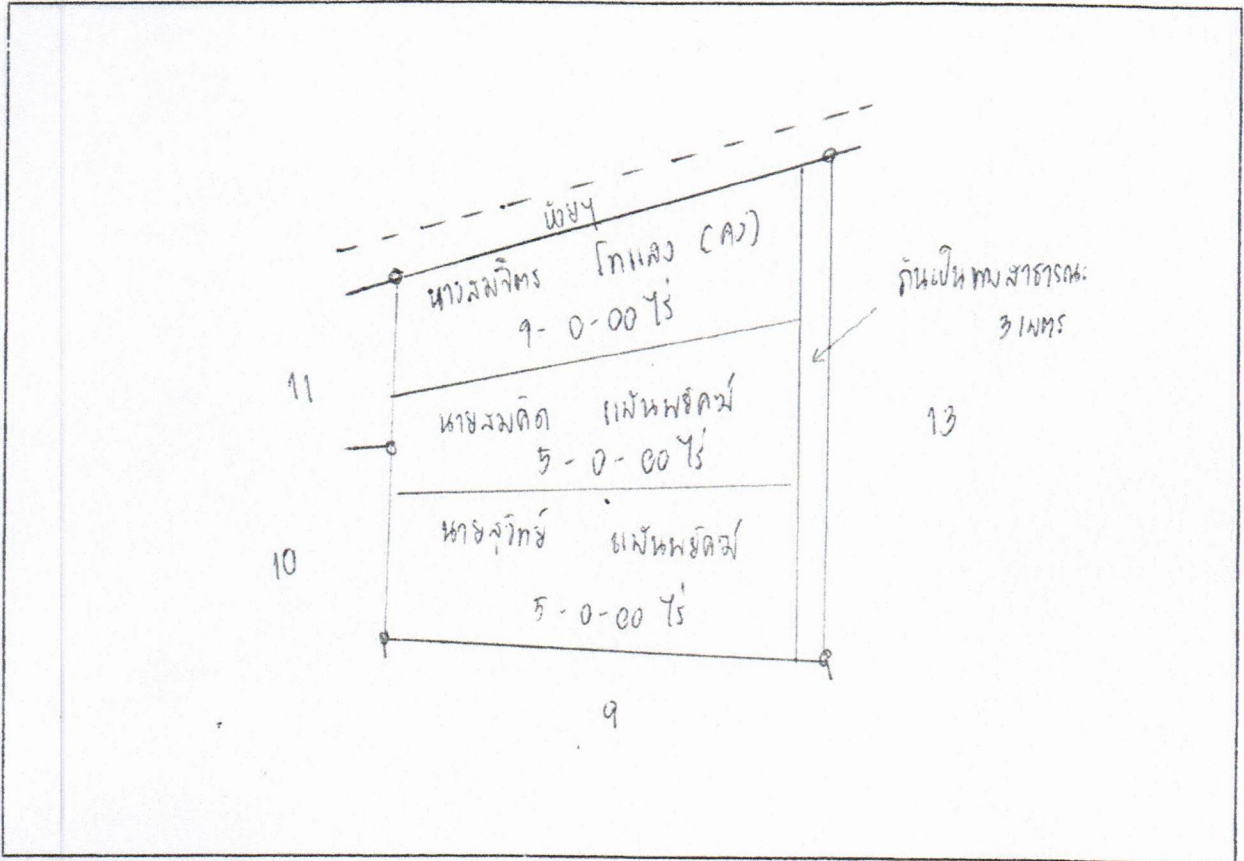 ห้วยฯ
นางสมจิตร โทแสง (คง)
9-0-00 ไร่
กันเป็นทางสาธารณะ
3 เมตร
11
นายสมคิด แม้นพยัคฆ์
5-0-00 ไร่
13
นายสุวิทย์ แม้นพยัคฆ์
10
5-0-00 ไร่
9